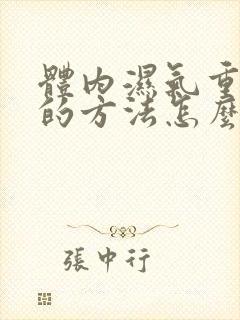 體內濕氣重
的方法怎麼
張中行